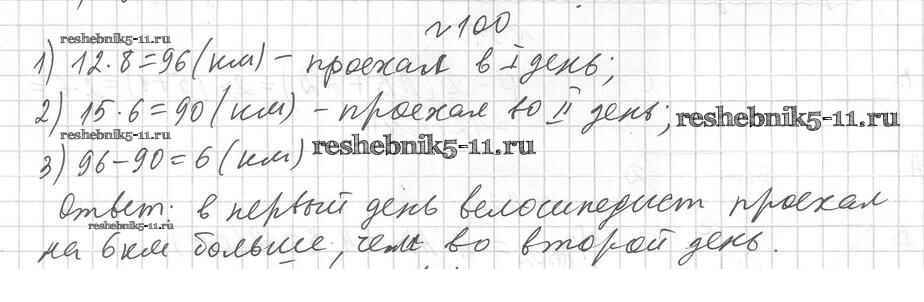 №100
reshebnik5-11.ru
1) 12·8=96(км) – проехал в I день;
2) 15·6=90(км) – проехал во II день;
reshebnik5-11.ru
reshebnik5-11.ru
3) 96–90=6(км)
reshebnik5-11.ru
Ответ: в первый день велосипедист проехал
reshebnik5-11.ru
на 6 км больше, чем во второй день.